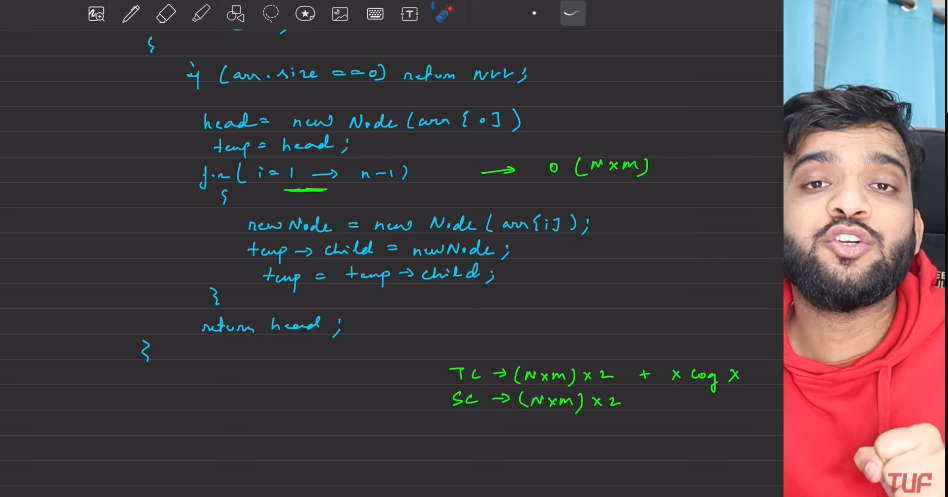 {
if (arr.size ==0) return NULL;
head= new Node (arr[0])
temp = head;
for( i= 1 → n-1) → O (N×M)
{
newNode = new Node (arr[i]);
temp → child = newNode;
temp = temp → child;
}
return head ;
}
TC → (N×M) × 2 + x log x
SC → (N×M) × 2
TUF